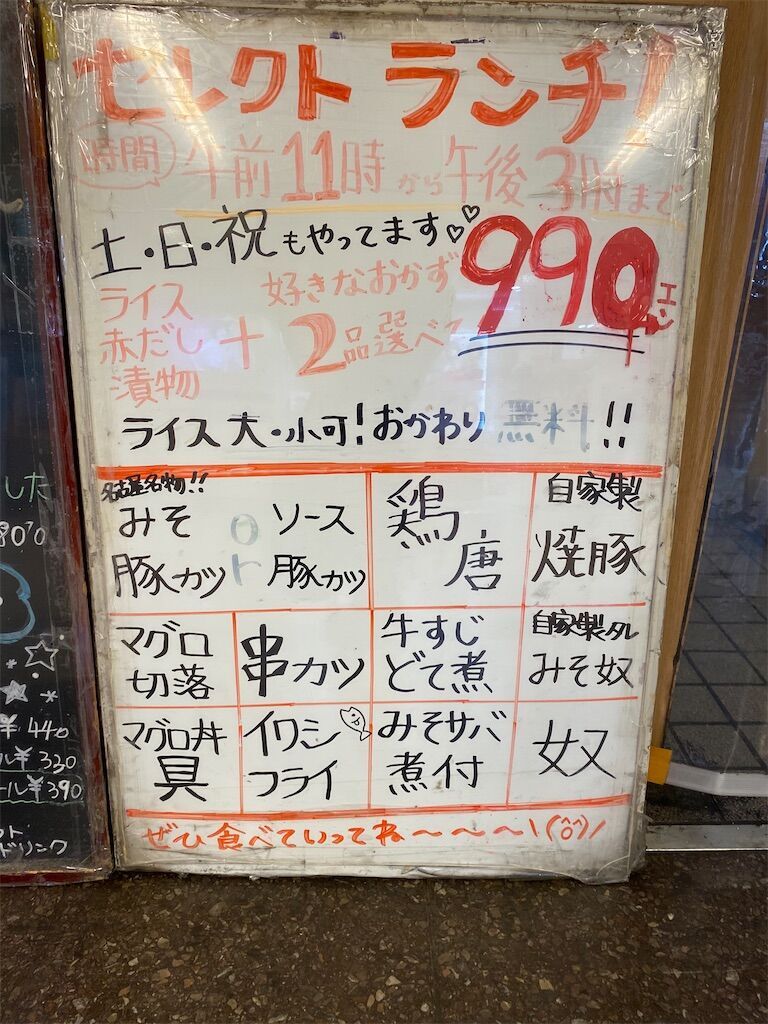 セレクト ランチ!
時間 午前11時から午後3時まで
土・日・祝もやってます♡♡
990エン
ライス
赤だし
漬物
+
好きなおかず
2品選べて
ライス大・小可!おかわり無料!!
名古屋名物!!
みそ
豚カツ
or
ソース
豚カツ
鶏
唐
自家製
焼豚
マグロ
切落
串カツ
牛すじ
どて煮
自家製タレ
みそ奴
マグロ丼
具
イワシ
フライ
みそサバ
煮付
奴
ぜひ食べていってね〜〜〜\(^o^)/
した
¥440
ル¥330
ール¥390
ドリンク